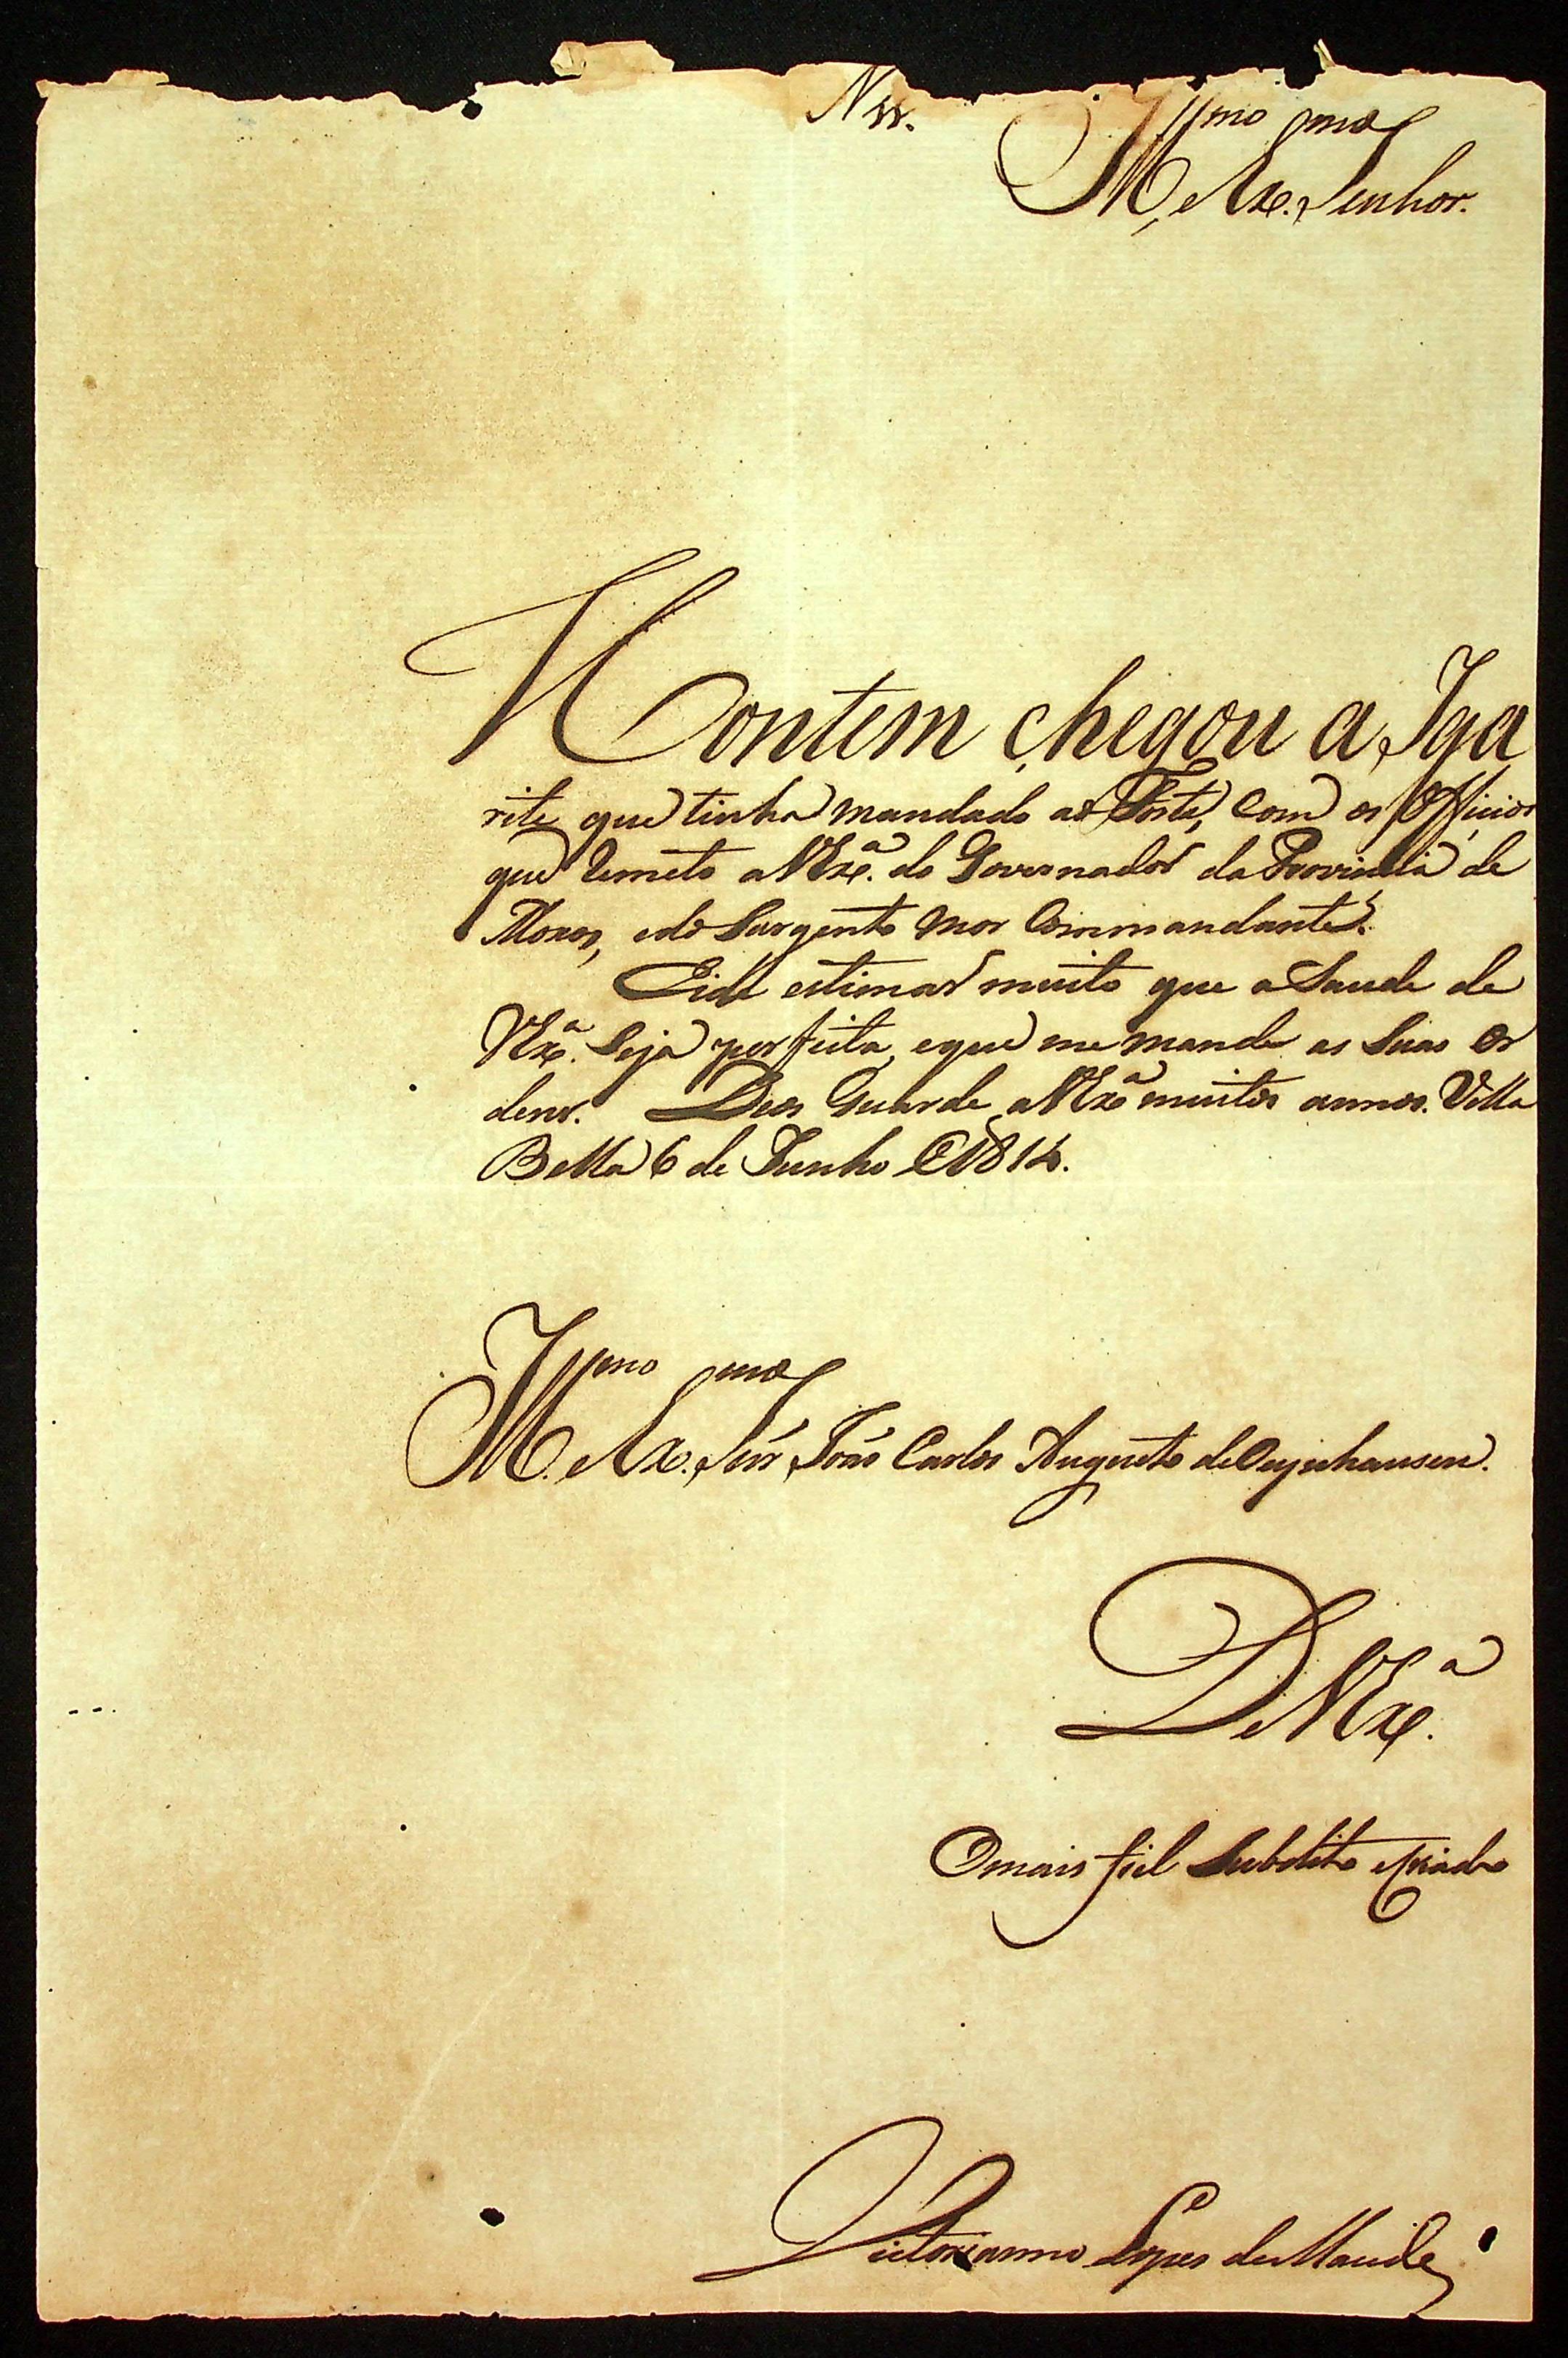 Illmo e Exmo Senhor.
Hontem chegou a Iga
rite que tinha mandado ao Forte, com os Officios
que remeto a VExa. do Governador da Provincia de
Moxos, e do Sargento Mor Commandante.
Eide estimar muito que a Saude de
VExa. Seja perfeita, e que me mande as Suas Or
dens. Deos Guarde a VExa muitos annos. Villa
Bella 6 de Junho de 1814.
Illmo e Exmo Snr João Carlos Augusto de Oeynhausen.
De VExa.
O mais fiel Subdito e Criado
Victorianno Lopes de Macido